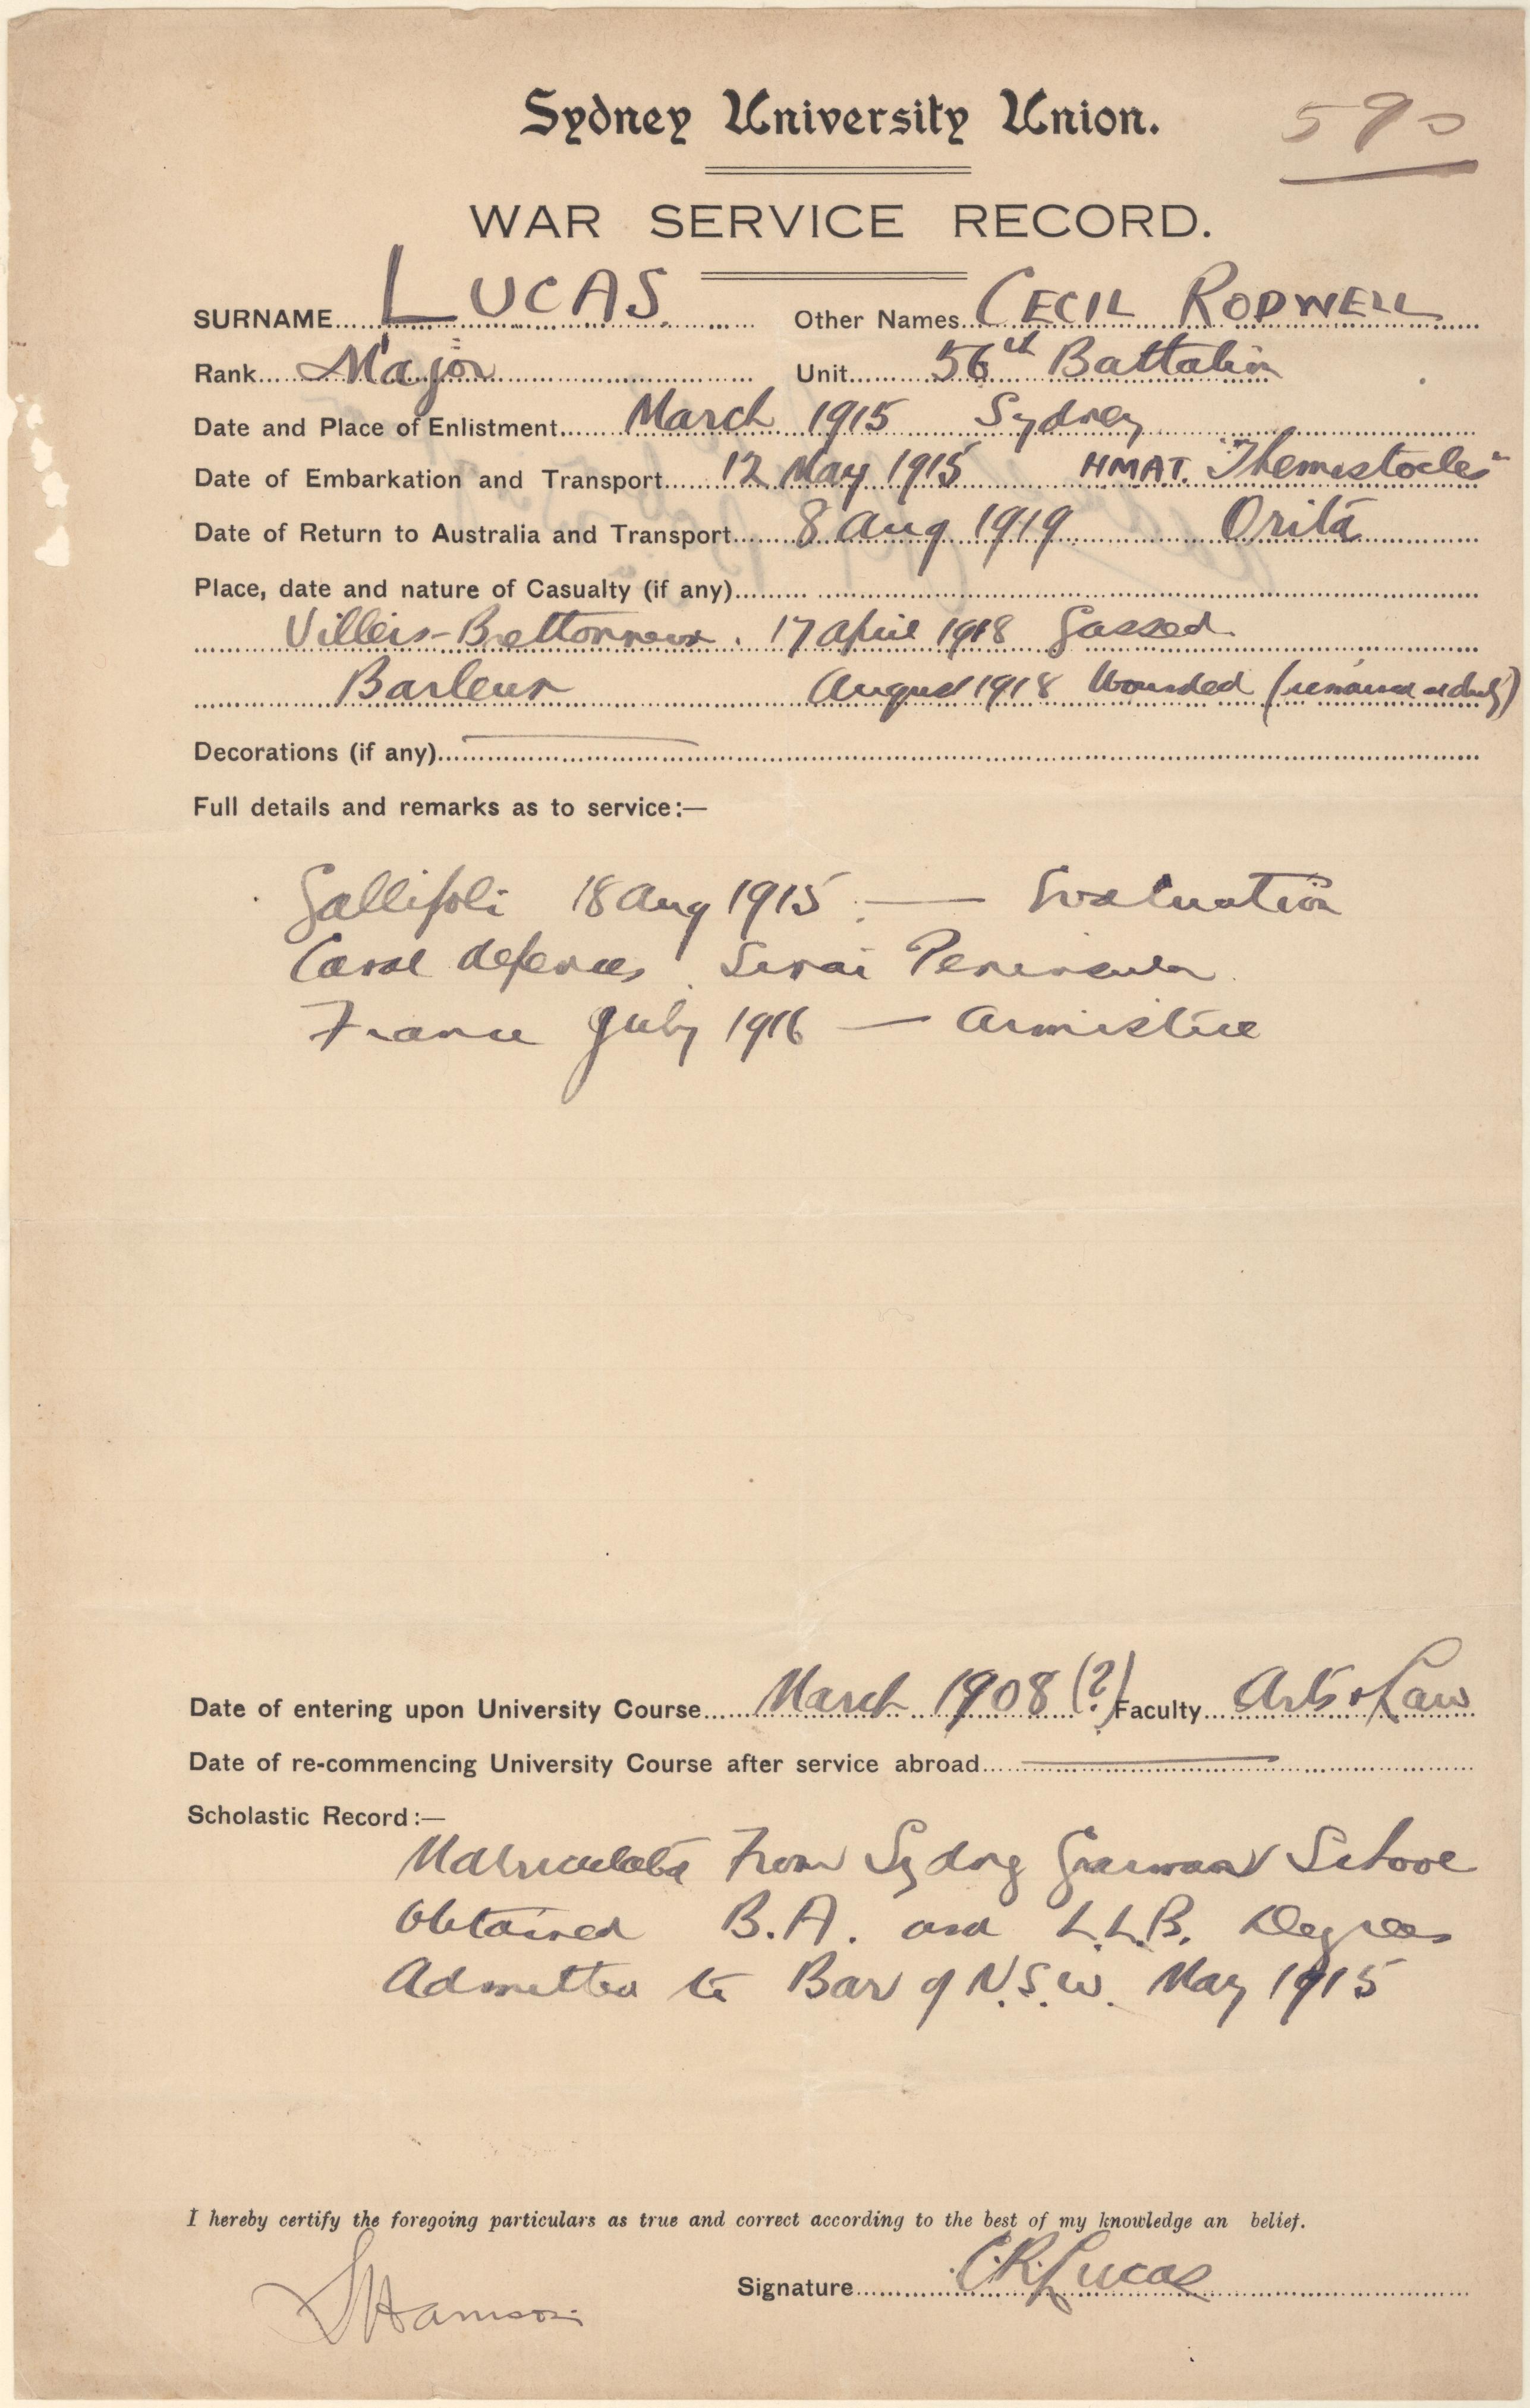 Sydney University Union.
590
WAR SERVICE RECORD.
SURNAME LUCAS Other Names CECIL RODWELL
Rank Major Unit 56th Battalion
Date and Place of Enlistment March 1915 Sydney
Date of Embarkation and Transport 12 May 1915 HMAT. "Themistocles"
Date of Return to Australia and Transport 8 Aug 1919 Orita
Place, date and nature of Casualty (if any)
Villers-Bretonneux. 17 April 1918 Gassed.
Barleux August 1918 Wounded (remained on duty)
Decorations (if any) —
Full details and remarks as to service:—
Gallipoli 18 Aug 1915 — Evacuation
Canal defences. Sinai Peninsula.
France July 1916 — Armistice
Date of entering upon University Course March 1908 (?) Faculty Arts & Law
Date of re-commencing University Course after service abroad —
Scholastic Record:—
Matriculated from Sydney Grammar School
Obtained B.A. and L.L.B. Degrees
Admitted to Bar of N.S.W. May 1915
I hereby certify the foregoing particulars as true and correct according to the best of my knowledge an belief.
Signature C.R. Lucas